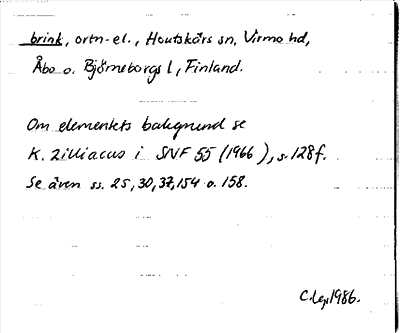 brink, ortn-el., Houtskärs sn, Virmo hd,
Åbo o. Björneborgs l, Finland.
Om elementets bakgrund se
K. Zilliacus i SNF 55 (1966), s. 128f.
Se även ss. 25, 30, 37, 154 o. 158.
1986.